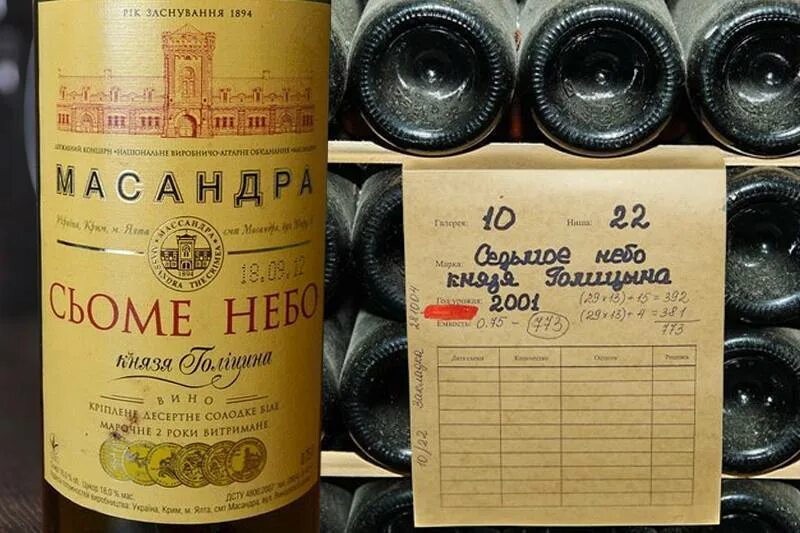 РІК ЗАСНУВАННЯ 1894
ДЕРЖАВНИЙ КОНЦЕРН «НАЦІОНАЛЬНЕ ВИРОБНИЧО-АГРАРНЕ ОБ'ЄДНАННЯ «МАСАНДРА»
МАСАНДРА
Україна, Крим, м. Ялта
смт Масандра, вул.
МАССАНДРА
1894
MASSANDRA THE CRIMEA
18.09.12
СЬОМЕ НЕБО
князя Голіцина
ВИНО
КРІПЛЕНЕ ДЕСЕРТНЕ СОЛОДКЕ БІЛЕ
МАРОЧНЕ 2 РОКИ ВИТРИМАНЕ
16,0 % об. Цукор 18,0 % мас.
ДСТУ 4806:2007
виробництва: Україна, Крим, м. Ялта, смт Масандра, вул.
Галерея: 10 Ниша: 22
Марка: Седьмое небо
князя Голицына
Год урожая: 2001
(29x13)+15=392
(29x13)+4=381
773
Емкость: 0.75 - 773
Дата съема Количество Остаток Роспись
10/22 Закладка 241004